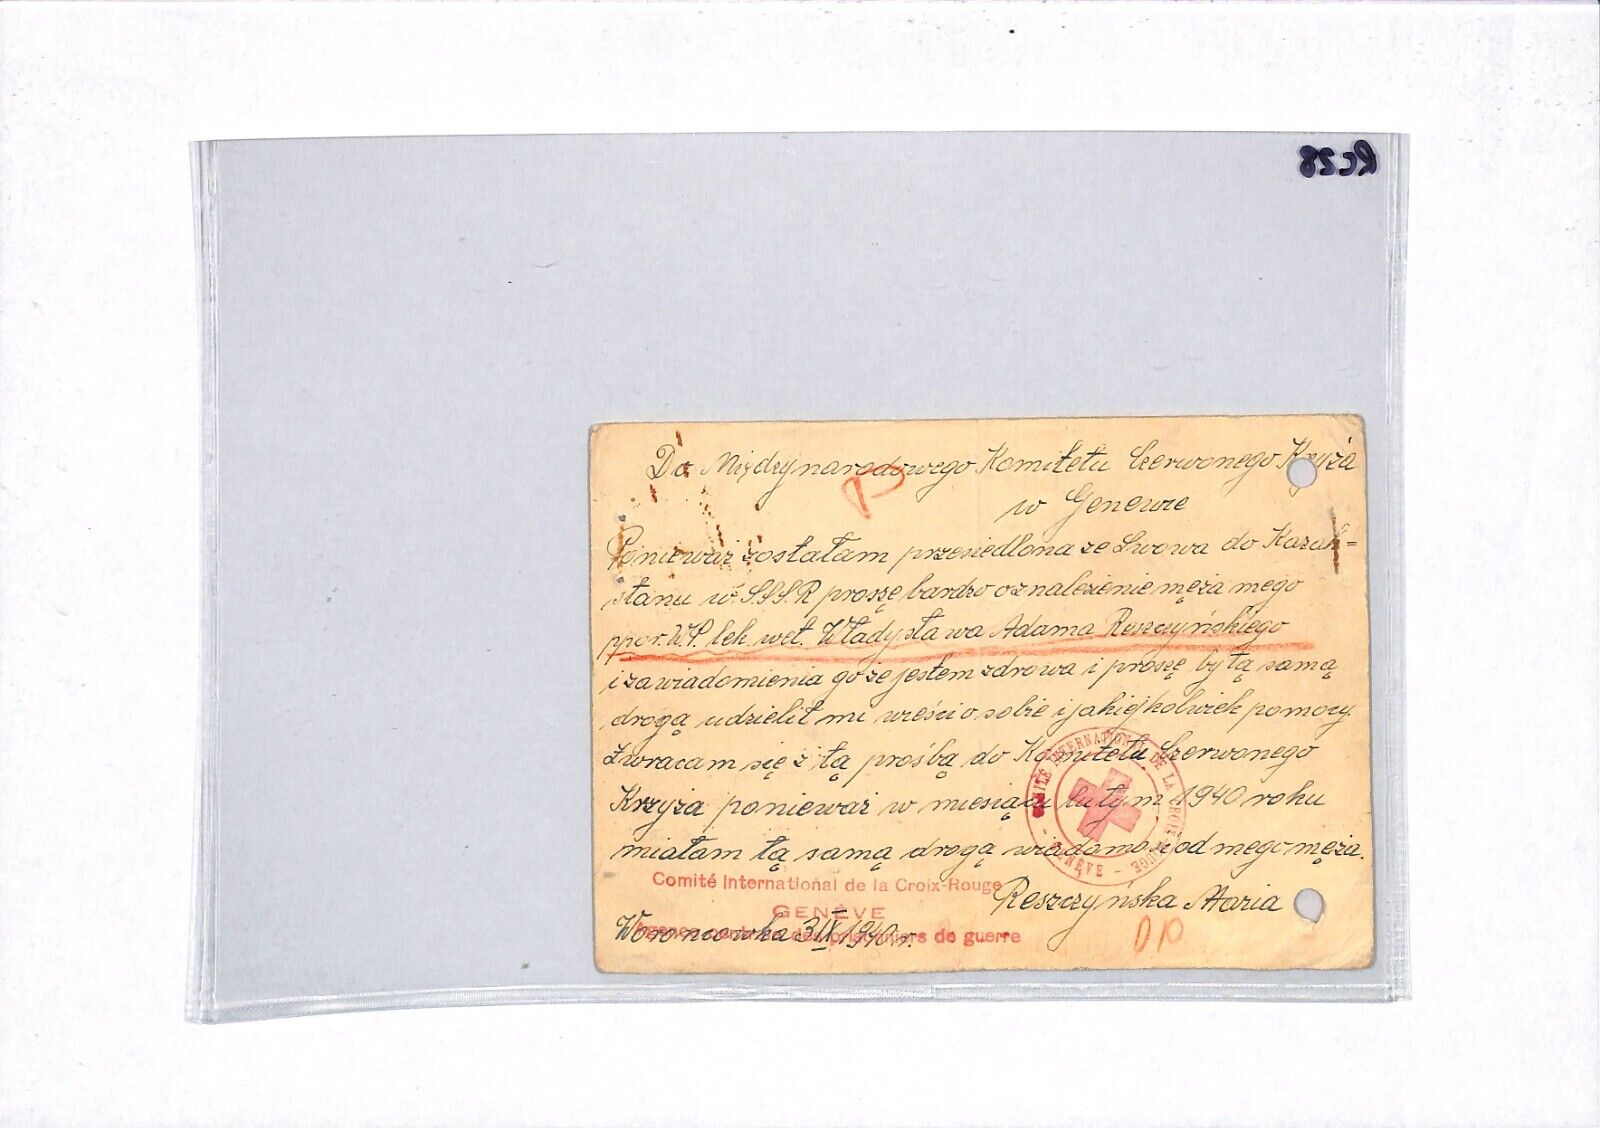 RC28
Do Międzynarodowego Komitetu Czerwonego Krzyża
w Genewie
Ponieważ zostałam przesiedlona ze Lwowa do Kazak=
stanu w S.S.S.R proszę bardzo o znalezienie męża mego
ppor. W.P. lek. wet. Władysława Adama Reszczyńskiego
i zawiadomienia go że jestem zdrowa i proszę by tą samą
drogą udzielił mi wieści o sobie i jakiejkolwiek pomocy.
Zwracam się z tą prośbą do Komitetu Czerwonego
Krzyża ponieważ w miesiącu lutym 1940 roku
miałam tą samą drogą wiadomość od mego męża.
COMITÉ INTERNATIONAL DE LA CROIX-ROUGE - GENÈVE -
Comité International de la Croix-Rouge
Reszczyńska Maria
GENÈVE
Woroncowka 3 IX 1940 r.
Agence centrale des prisonniers de guerre